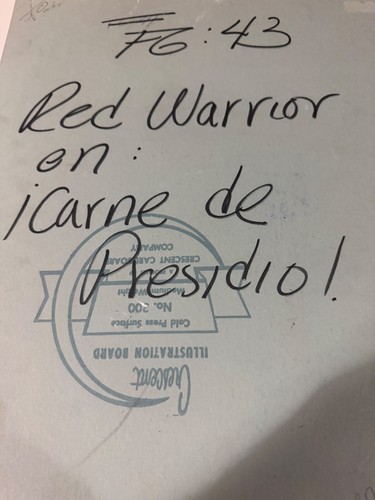 FG: 43
Red Warrior
en:
¡Carne de
Presidio!
COMPANY
CRESCENT CARDBOARD
Medium Weight
No. 200
Cold Press Surface
ILLUSTRATION BOARD
Crescent